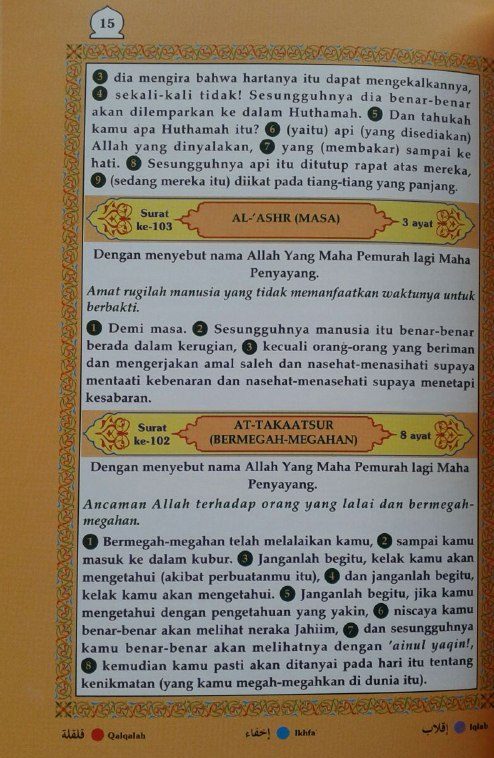 15
3 dia mengira bahwa hartanya itu dapat mengekalkannya,
4 sekali-kali tidak! Sesungguhnya dia benar-benar
akan dilemparkan ke dalam Huthamah. 5 Dan tahukah
kamu apa Huthamah itu? 6 (yaitu) api (yang disediakan)
Allah yang dinyalakan, 7 yang (membakar) sampai ke
hati. 8 Sesungguhnya api itu ditutup rapat atas mereka,
9 (sedang mereka itu) diikat pada tiang-tiang yang panjang.
Surat ke-103
AL-'ASHR (MASA)
3 ayat
Dengan menyebut nama Allah Yang Maha Pemurah lagi Maha
Penyayang.
Amat rugilah manusia yang tidak memanfaatkan waktunya untuk
berbakti.
1 Demi masa. 2 Sesungguhnya manusia itu benar-benar
berada dalam kerugian, 3 kecuali orang-orang yang beriman
dan mengerjakan amal saleh dan nasehat-menasihati supaya
mentaati kebenaran dan nasehat-menasehati supaya menetapi
kesabaran.
Surat ke-102
AT-TAKAATSUR
(BERMEGAH-MEGAHAN)
8 ayat
Dengan menyebut nama Allah Yang Maha Pemurah lagi Maha
Penyayang.
Ancaman Allah terhadap orang yang lalai dan bermegah-
megahan.
1 Bermegah-megahan telah melalaikan kamu, 2 sampai kamu
masuk ke dalam kubur. 3 Janganlah begitu, kelak kamu akan
mengetahui (akibat perbuatanmu itu), 4 dan janganlah begitu,
kelak kamu akan mengetahui. 5 Janganlah begitu, jika kamu
mengetahui dengan pengetahuan yang yakin, 6 niscaya kamu
benar-benar akan melihat neraka Jahiim, 7 dan sesungguhnya
kamu benar-benar akan melihatnya dengan 'ainul yaqin!,
8 kemudian kamu pasti akan ditanyai pada hari itu tentang
kenikmatan (yang kamu megah-megahkan di dunia itu).
قلقلة Qalqalah إخفاء Ikhfa' إقلاب Iqlab